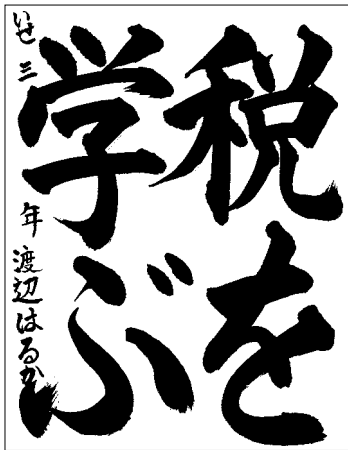 税を
学ぶ
いせ 三年 渡辺はるか